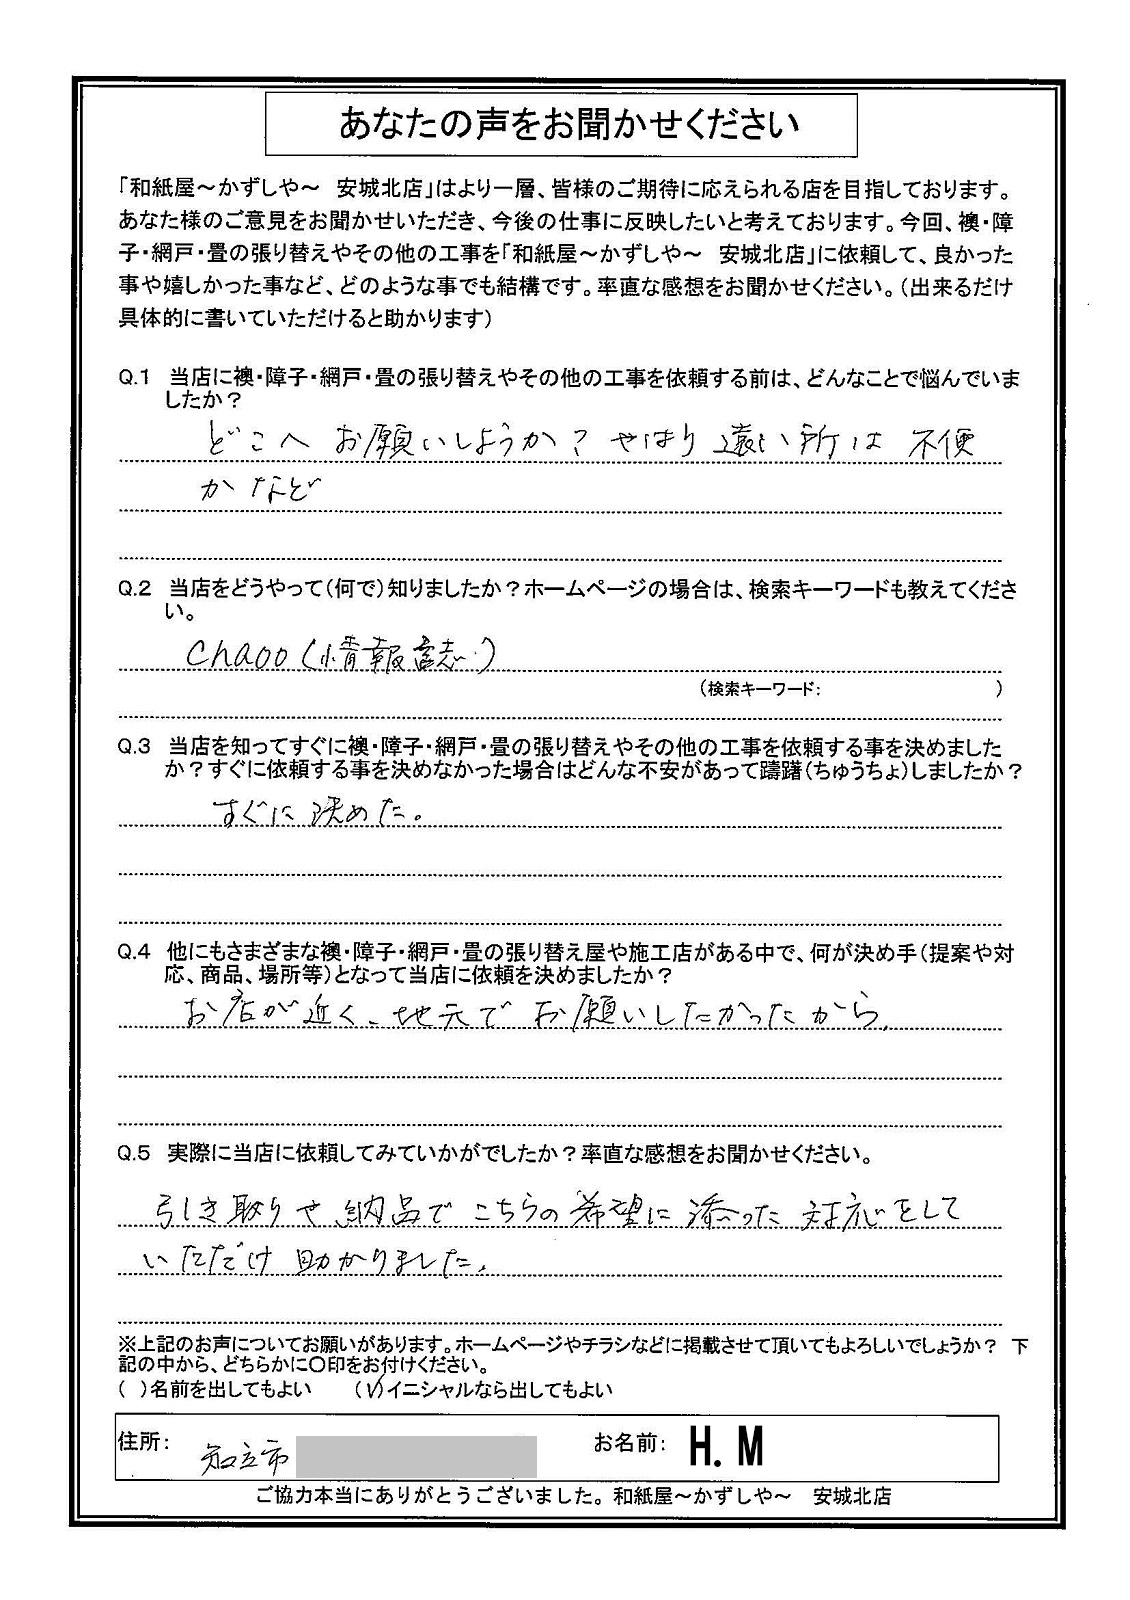 あなたの声をお聞かせください
「和紙屋～かずしや～　安城北店」はより一層、皆様のご期待に応えられる店を目指しております。
あなた様のご意見をお聞かせいただき、今後の仕事に反映したいと考えております。今回、襖・障
子・網戸・畳の張り替えやその他の工事を「和紙屋～かずしや～　安城北店」に依頼して、良かった
事や嬉しかった事など、どのような事でも結構です。率直な感想をお聞かせください。（出来るだけ
具体的に書いていただけると助かります）
Q.1　当店に襖・障子・網戸・畳の張り替えやその他の工事を依頼する前は、どんなことで悩んでいま
したか？
どこへ お願いしようか？ やはり 遠い所は 不便
かなど
Q.2　当店をどうやって（何で）知りましたか？ホームページの場合は、検索キーワードも教えてくださ
い。
chaoo（情報誌）
（検索キーワード：　　　　　　　　　　）
Q.3　当店を知ってすぐに襖・障子・網戸・畳の張り替えやその他の工事を依頼する事を決めました
か？すぐに依頼する事を決めなかった場合はどんな不安があって躊躇（ちゅうちょ）しましたか？
すぐに決めた。
Q.4　他にもさまざまな襖・障子・網戸・畳の張り替え屋や施工店がある中で、何が決め手（提案や対
応、商品、場所等）となって当店に依頼を決めましたか？
お店が近く、地元で お願いしたかったから。
Q.5　実際に当店に依頼してみていかがでしたか？率直な感想をお聞かせください。
引き取りや 納品で こちらの希望に 添った 対応をして
いただけ 助かりました。
※上記のお声についてお願いがあります。ホームページやチラシなどに掲載させて頂いてもよろしいでしょうか？　下
記の中から、どちらかに○印をお付けください。
（　）名前を出してもよい　　（✓）イニシャルなら出してもよい
住所：　知立市　　お名前：　H.M
ご協力本当にありがとうございました。和紙屋～かずしや～　安城北店